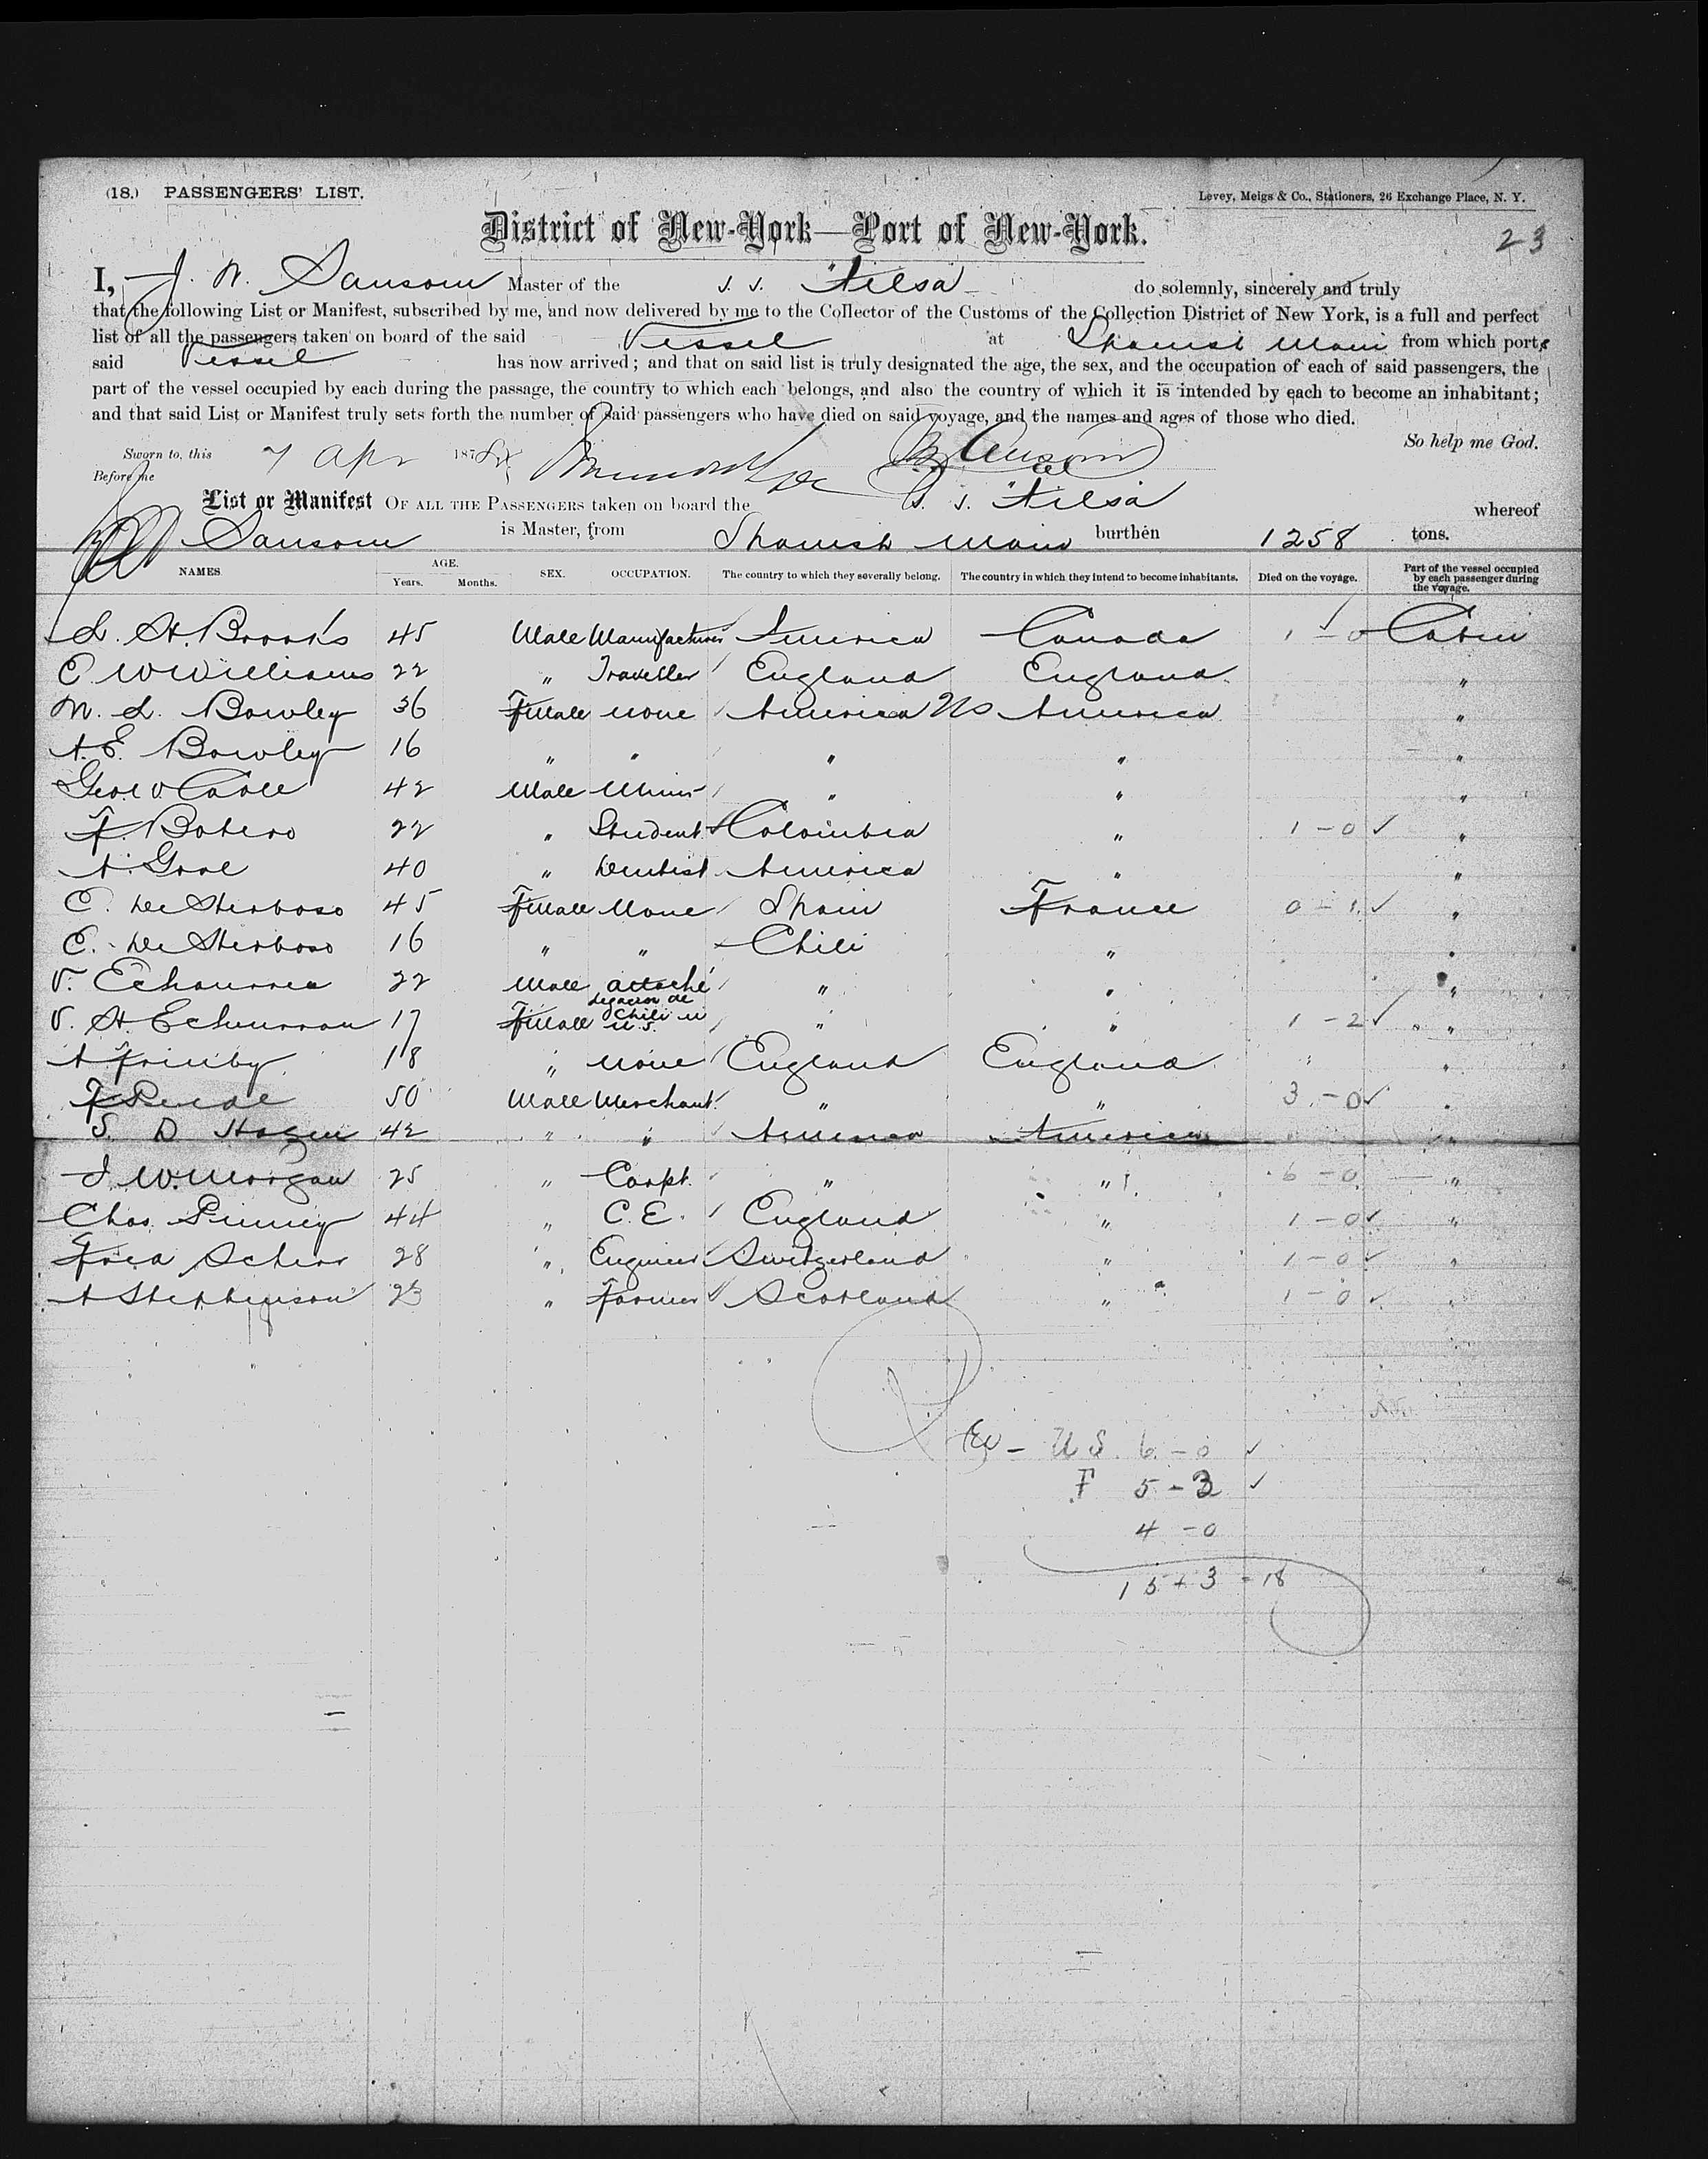 (18.) PASSENGERS' LIST.
Levey, Meigs & Co., Stationers, 26 Exchange Place, N. Y.
District of New-York—Port of New-York.
23
I, J. W. Sansom Master of the S. S. "Ailsa" do solemnly, sincerely and truly
that the following List or Manifest, subscribed by me, and now delivered by me to the Collector of the Customs of the Collection District of New York, is a full and perfect
list of all the passengers taken on board of the said Vessel at Spanish Main from which ports
said Vessel has now arrived; and that on said list is truly designated the age, the sex, and the occupation of each of said passengers, the
part of the vessel occupied by each during the passage, the country to which each belongs, and also the country of which it is intended by each to become an inhabitant;
and that said List or Manifest truly sets forth the number of said passengers who have died on said voyage, and the names and ages of those who died.
So help me God.
Sworn to, this 7 Apr 187
Before me
List or Manifest OF ALL THE PASSENGERS taken on board the S. S. "Ailsa" whereof
Sansom is Master, from Spanish Main burthen 1258 tons.
NAMES. AGE. Years. Months. SEX. OCCUPATION. The country to which they severally belong. The country in which they intend to become inhabitants. Died on the voyage. Part of the vessel occupied by each passenger during the voyage.
L. H. Brooks 45 Male Manufacturer America Canada 1 - 0 Cabin
C W Williams 22 " Traveller England England "
M. L. Bowley 36 Female None America US America "
A. E. Bowley 16 " " " " "
Geo. V. Cable 42 Male Miner " " "
F. Botero 22 " Student Colombia " 1 - 0 ✓ "
A. Gove 40 " Dentist America " "
C. De 45 Female None Spain France 0 - 1 ✓ "
E. De 16 " " Chili " "
V. Echaurren 22 Male attaché " " "
Legacion de Chili U.S.
V. H. Echaurren 17 Female " " 1 - 2 ✓ "
A 18 " None England England "
F 50 Male Merchant " " 3 - 0 ✓ "
S. D Hagen 42 " " America America "
J. W. Morgan 25 " Carpt. " " 6 - 0 "
Chas. Pinney 44 " C. E. England " 1 - 0 ✓ "
Fred 28 " Engineer Switzerland " 1 - 0 ✓ "
A Stephenson 23 " Farmer Scotland " 1 - 0 ✓ "
U S. 6 - 0 ✓
F 5 - 3 ✓
4 - 0
15 + 3 = 18